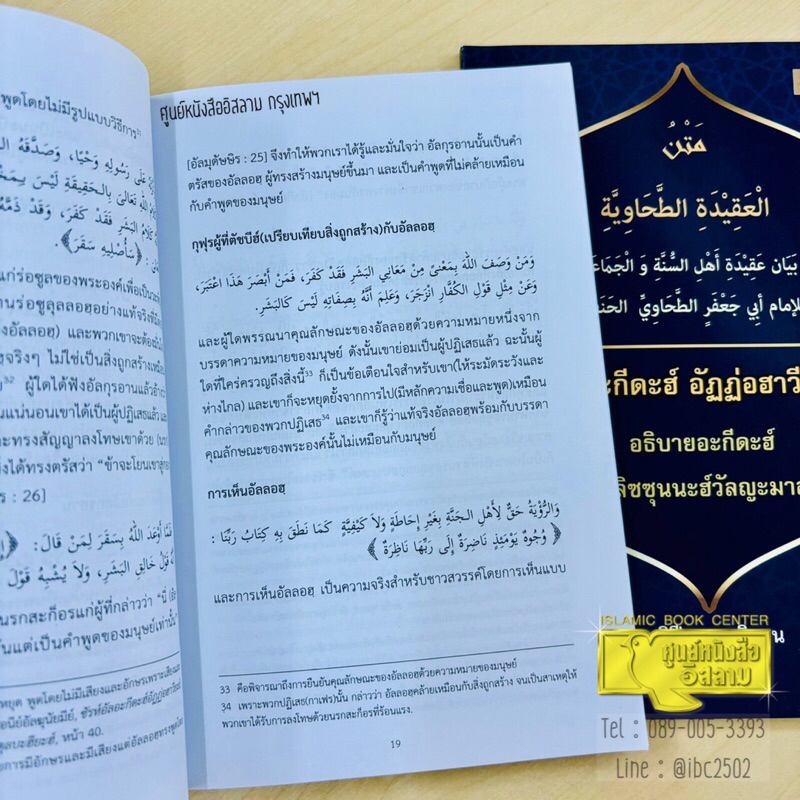 พูดโดยไม่มีรูปแบบวิธีการ³¹
عَلَى رَسُولِهِ وَحْيًا، وَصَدَّقَهُ
اللهِ تَعَالَى بِالْحَقِيقَةِ لَيْسَ
كَلَامُ الْبَشَرِ فَقَدْ كَفَرَ، وَقَدْ ذَمَّهُ
﴿سَأُصْلِيهِ سَقَرَ﴾.
แก่ร่อซูลของพระองค์เพื่อเป็น
านร่อซูลุลลอฮอย่างแท้จริง
งอัลลอฮฺ) และพวกเขาจะต้อง
จริงๆ ไม่ใช่เป็นสิ่งถูกสร้างเหมือน
³² ผู้ใดได้ฟังอัลกุรอานแล้ว
นแน่นอนเขาได้เป็นผู้ปฏิเสธแล้ว
ะทรงสัญญาลงโทษเขาด้วย
งได้ทรงตรัสว่า “ข้าจะโยนเขา
: 26]
أَوْعَدَ اللهُ بِسَقَرَ لِمَنْ قَالَ:
قَوْلُ خَالِقِ الْبَشَرِ، وَلَا يُشْبِهُ قَوْلَ
นรกสะก็อรแก่ผู้ที่กล่าวว่า “นี่
แต่เป็นคำพูดของมนุษย์เท่านั้น”
หยุด พูดโดยไม่มีเสียงและอักษร
หน้า 40.
การมีอักษรและมีเสียงแต่อัลลอฮฺทรงพูด
ศูนย์หนังสืออิสลาม กรุงเทพฯ
[อัลมุดัษษิร : 25] จึงทำให้พวกเราได้รู้และมั่นใจว่า อัลกุรอานนั้นเป็นคำ
ตรัสของอัลลอฮฺ ผู้ทรงสร้างมนุษย์ขึ้นมา และเป็นคำพูดที่ไม่คล้ายเหมือน
กับคำพูดของมนุษย์
กุฟุรผู้ที่ตัชบีฮ์(เปรียบเทียบสิ่งถูกสร้าง)กับอัลลอฮฺ
وَمَنْ وَصَفَ اللهَ بِمَعْنًى مِنْ مَعَانِي الْبَشَرِ فَقَدْ كَفَرَ، فَمَنْ أَبْصَرَ هَذَا اعْتَبَرَ،
وَعَنْ مِثْلِ قَوْلِ الْكُفَّارِ انْزَجَرَ، وَعَلِمَ أَنَّهُ بِصِفَاتِهِ لَيْسَ كَالْبَشَرِ.
และผู้ใดพรรณนาคุณลักษณะของอัลลอฮฺด้วยความหมายหนึ่งจาก
บรรดาความหมายของมนุษย์ ดังนั้นเขาย่อมเป็นผู้ปฏิเสธแล้ว ฉะนั้นผู้
ใดที่ใคร่ครวญถึงสิ่งนี้³³ ก็เป็นข้อเตือนใจสำหรับเขา(ให้ระมัดระวังและ
ห่างไกล) และเขาก็จะหยุดยั้งจากการไป(มีหลักความเชื่อและพูด)เหมือน
คำกล่าวของพวกปฏิเสธ³⁴ และเขาก็รู้ว่าแท้จริงอัลลอฮฺพร้อมกับบรรดา
คุณลักษณะของพระองค์นั้นไม่เหมือนกับมนุษย์
การเห็นอัลลอฮฺ
وَالرُّؤْيَةُ حَقٌّ لِأَهْلِ الْجَنَّةِ بِغَيْرِ إِحَاطَةٍ وَلَا كَيْفِيَّةٍ كَمَا نَطَقَ بِهِ كِتَابُ رَبِّنَا :
﴿ وُجُوهٌ يَوْمَئِذٍ نَاضِرَةٌ إِلَى رَبِّهَا نَاظِرَةٌ ﴾
และการเห็นอัลลอฮฺ เป็นความจริงสำหรับชาวสวรรค์โดยการเห็นแบบ
33 คือพิจารณาถึงการยืนยันคุณลักษณะของอัลลอฮฺด้วยความหมายของมนุษย์
34 เพราะพวกปฏิเสธ(กาเฟร)นั้น กล่าวว่า อัลลอฮฺคล้ายเหมือนกับสิ่งถูกสร้าง จนเป็นสาเหตุให้
พวกเขาได้รับการลงโทษด้วยนรกสะก็อรที่ร้อนแรง.
19
مَتْنُ
الْعَقِيْدَةِ الطَّحَاوِيَّةِ
بيَان عَقِيْدَةِ أَهْلِ السُّنَّة وَ الْجَمَاعَ
لِلإمام أبي جَعْفَرٍ الطَّحَاوِيِّ الحَنَ
ะกีดะฮ์ อัฏฏ่อฮาวี
อธิบายอะกีดะฮ์
ลิซซุนนะฮ์วัลญะมาอ
ISLAMIC BOOK CENTER
ศูนย์หนังสือ
อิสลาม
Tel : 089-005-3393
Line : @ibc2502